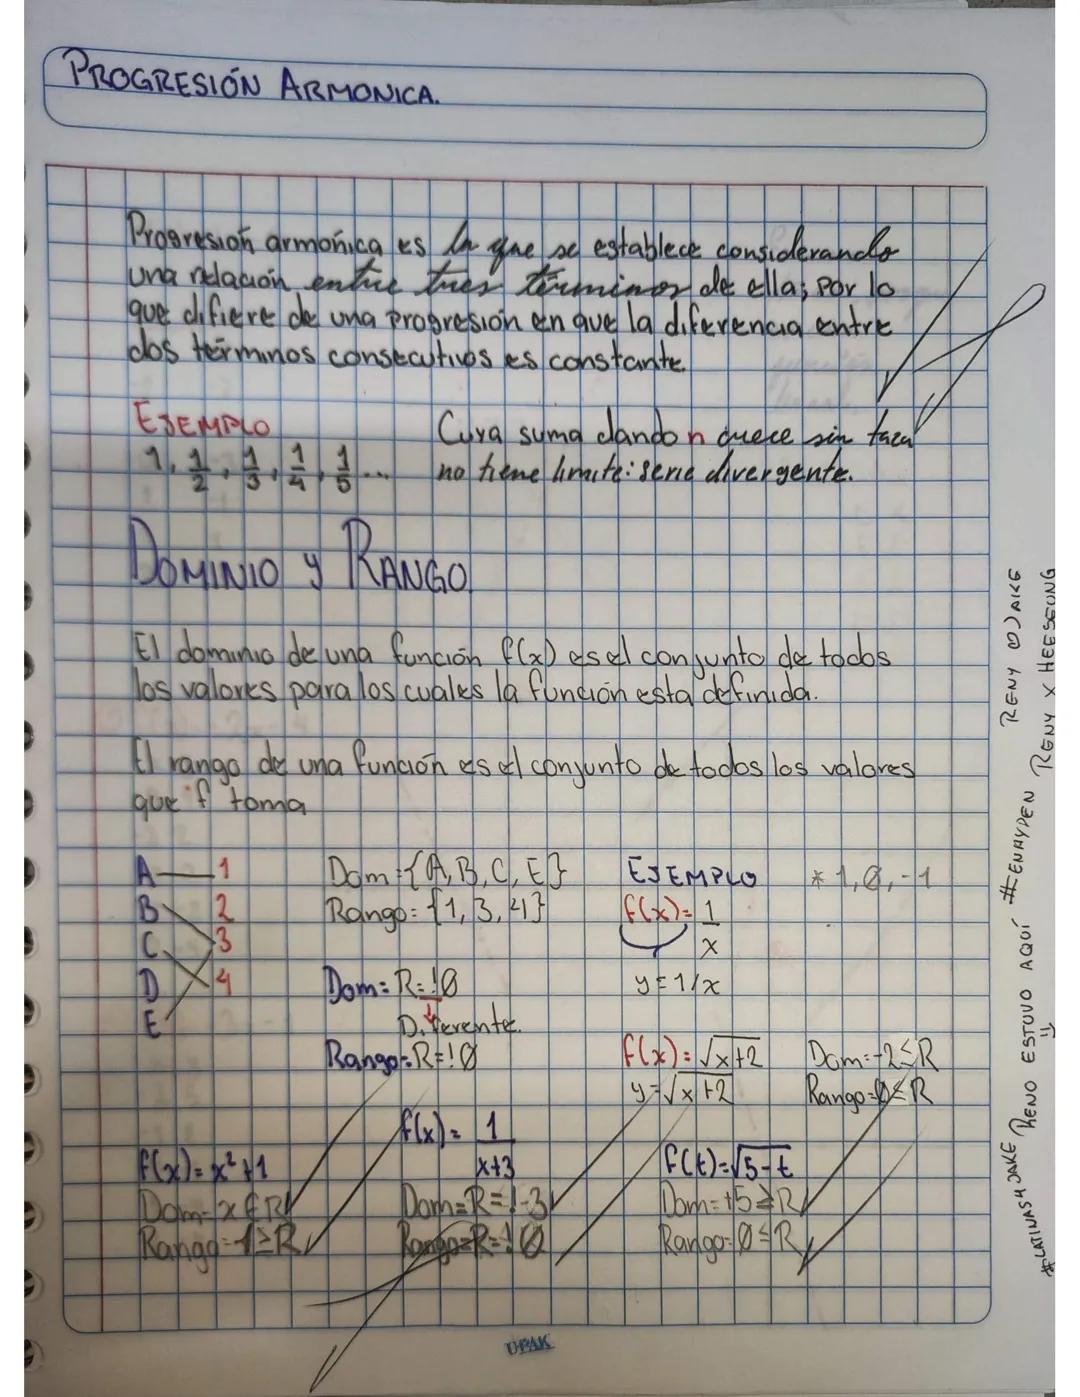 PROGRESIÓN ARMONICA.
Progresión armónica es la que se establece considerando
una relación entre tres términos de ella; por lo
que difiere de una progresión en que la diferencia entre
dos términos consecutivos es constante.
EJEMPLO
1, 1/2, 1/3, 1/4, 1/5 ...
Cuya suma dando n crece sin
no tiene limite: serie divergente.
DOMINIO y RANGO.
El dominio de una función f(x) es el conjunto de todos
los valores para los cuales la función esta definida.
El rango de una función es el conjunto de todos los valores
que f toma
A 1
B 2
C 3
D 4
E
Dom={A, B, C, E}
Rango={1, 3, 4}
Dom=R=!0
Diferente.
Rango=R=!0
EJEMPLO * 1, 0, -1
f(x)= 1/x
y=1/x
f(x)=√x+2 Dom=-2≤R
y=√x+2 Rango=0≤R
f(x)=x²+1
Dom=x∈R
Rango=1≥R
f(x)= 1/x+3
Dom=R=!-3
Rango=R=!0
f(t)=√5-t
Dom=+5≥R
Rango=0≤R
UPAK
#LATINAS4JAKE RENO ESTUVO AQUÍ #ENHYPEN RENY JAKE
RENY X HEESEUNG